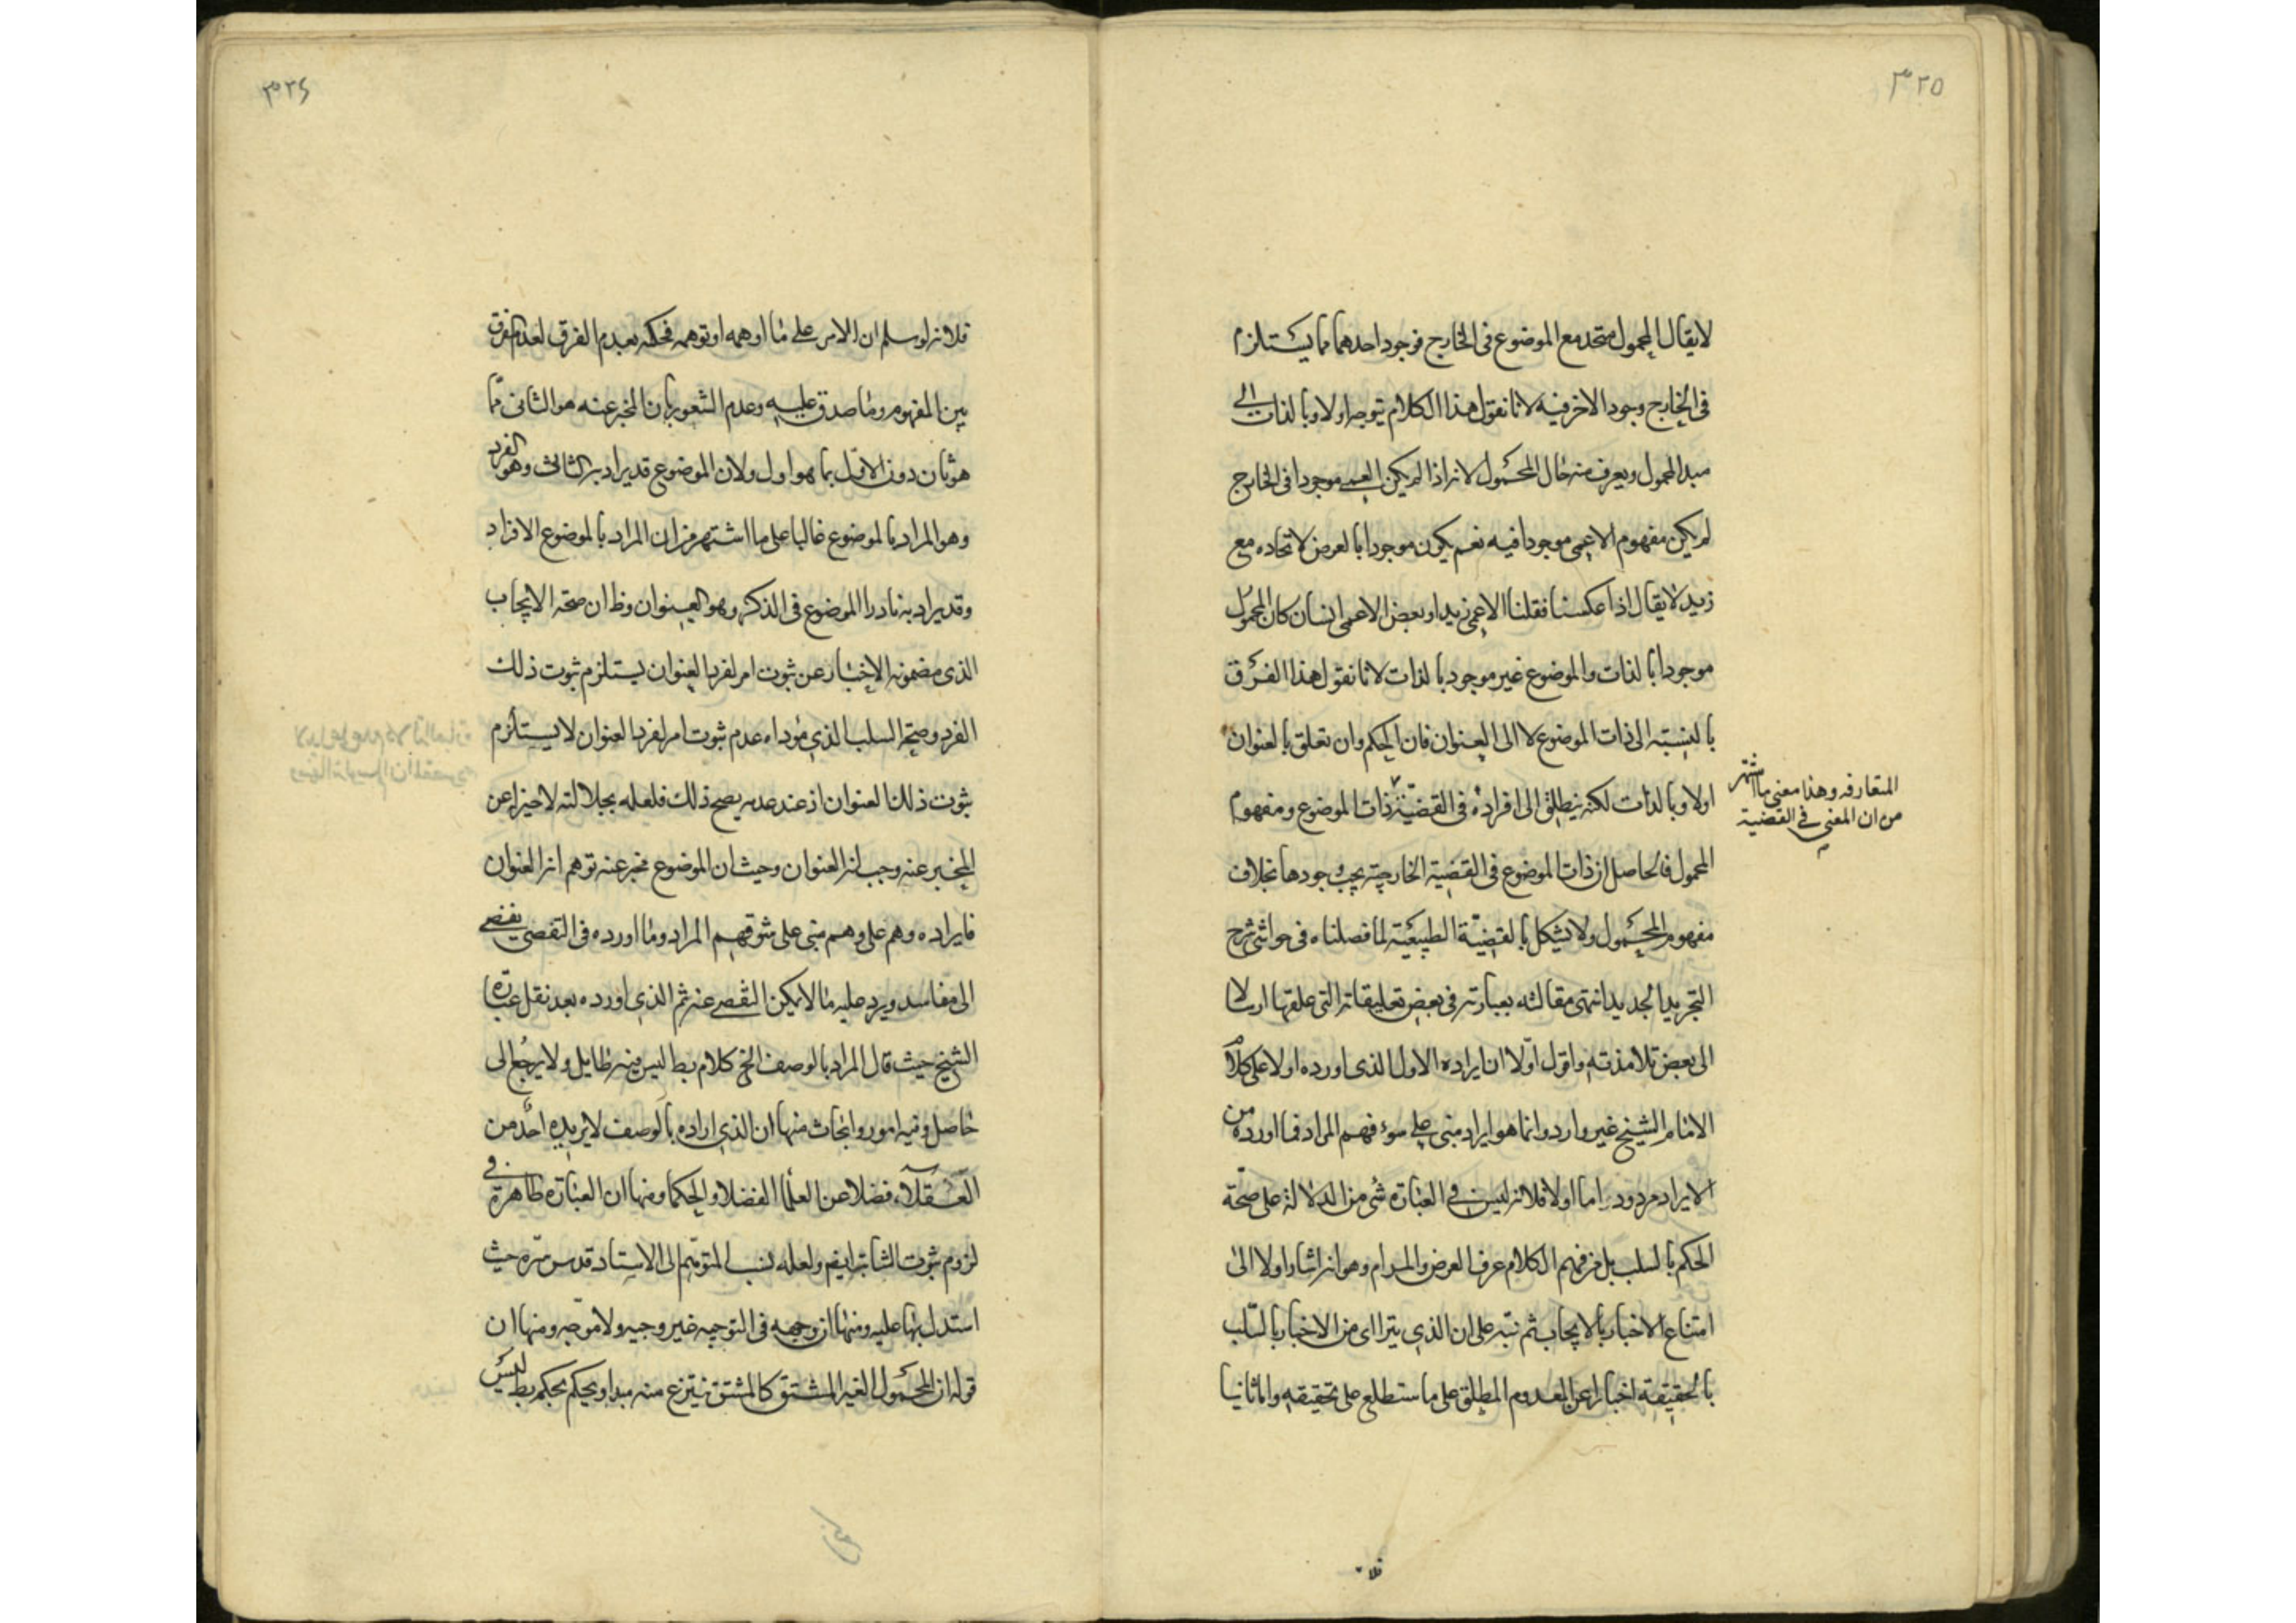 ٣٢٥
لا يقال المحمول متحد مع الموضوع فى الخارج فوجود احدهما مما يستلزم
فى الخارج وجود الاخر فيه لانا نقول هذا الكلام يتوجه اولا وبالذات الى
مبدا المحمول ويعرف منه حال المحمول لانه اذا لم يكن العمى موجودا فى الخارج
لم يكن مفهوم الاعمى موجودا فيه نعم يكون موجودا بالعرض لاتحاده مع
زيد لا يقال اذا عكسنا فقلنا الاعمى زيد او بعض الاعمى انسان كان المحمول
موجودا بالذات والموضوع غير موجود بالذات لانا نقول هذا الفرق
بالنسبته الى ذات الموضوع لا الى العنوان فان الحكم وان تعلق بالعنوان
اولا وبالذات لكنه ينطلق الى افراده فى القضيّة ذات الموضوع ومفهوم
المتعارفه وهذا معنى ما اشتهر
من ان المعنى فى القضية
المحمول فالحاصل ان ذات الموضوع فى القضية الخارجية يجب وجودها بخلاف
مفهوم المحمول ولا يشكل بالقضيّة الطبيعيّة لما فصلناه فى حواشى شرح
التجريد الجديد انتهى مقالته بعبارته فى بعض تعليقاته التى علقها ارسالا
الى بعض تلامذته واقول اوّلا ان ايراده الاول الذى اورده اولا على كلام
الامام الشيخ غير وارد وانما هو ايراد مبنى على سوء فهم المراد فما اورده من
الايراد مردود اما اولا فلانه ليس فى العبارة شى من الدلالة على صحّة
الحكم بالسلب بل من فهم الكلام عرف الغرض والمرام وهو انه اشار اولا الى
امتناع الاخبار بالايجاب ثم نبّه على ان الذى يتراأى من الاخبار بالسّلب
بالحقيقة اخبارا عن المعدوم المطلق على ما ستطلع على تحقيقه واما ثانيا
فلا
٣٢٦
فلانه لو سلم ان الامر على ما اوهمه او توهمه فحكمه بعدم الفرق لعدم الفرق
بين المفهوم وما صدق عليه وعدم الشعور بان المخبر عنه هو الثانى بما
هو ثان دون الاوّل بما هو اول ولان الموضوع قد يراد به الثالث وهو الفرد
وهو المراد بالموضوع غالبا على ما اشتهر من ان المراد بالموضوع الافراد
وقد يراد به نادرا الموضوع فى الذكر وهو العنوان وظ ان صحة الايجاب
الذى مضمونه الاخبار عن ثبوت امر لفرد العنوان يستلزم ثبوت ذلك
الفرد وصحة السلب الذى موداه عدم ثبوت امر لفرد العنوان لا يستلزم
ثبوت ذلك العنوان اذ عند عدمه يصح ذلك فلعله بجلالته لا خبر عن
المخبر عنه وجب له العنوان وحيث ان الموضوع مخبر عنه توهم انه العنوان
فايراده وهم على وهم مبنى على سوء فهم المراد وما اورده فى التفصى يفضى
الى مفاسد ويرد عليه ما لا يمكن التفصى عنه ثم الذى اورده بعد نقل عبارة
الشيخ حيث قال المراد بالوصف الخ كلام بط ليس منه طايل ولا يرجع الى
حاصل وفيه امور وابحاث منها ان الذى اراده بالوصف لا يريده احد من
العقلاء فضلا عن العلما الفضلا والحكما ومنها ان العبارة ظاهرة فى
لزوم ثبوت الثابت ايضا ولعله لنسب المتوهم الى الاستاد قدس سره حيث
استدل بها عليه ومنها ان وجهه فى التوجيه غير وجيه ولا موجه ومنها ان
قوله ان المحمول الغير المشتق كالمشتق ينتزع منه مبدا ويحكم بحكم بط ليس